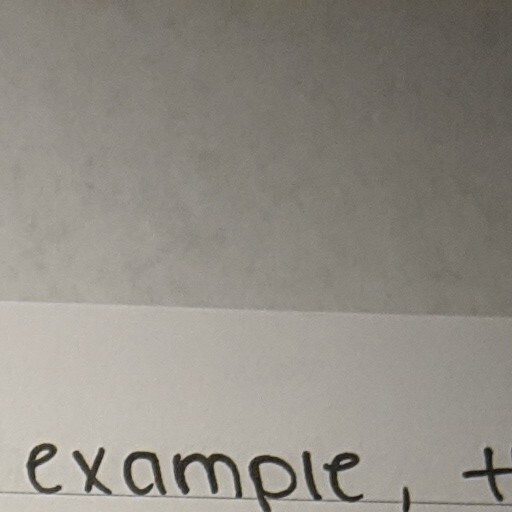 example, t